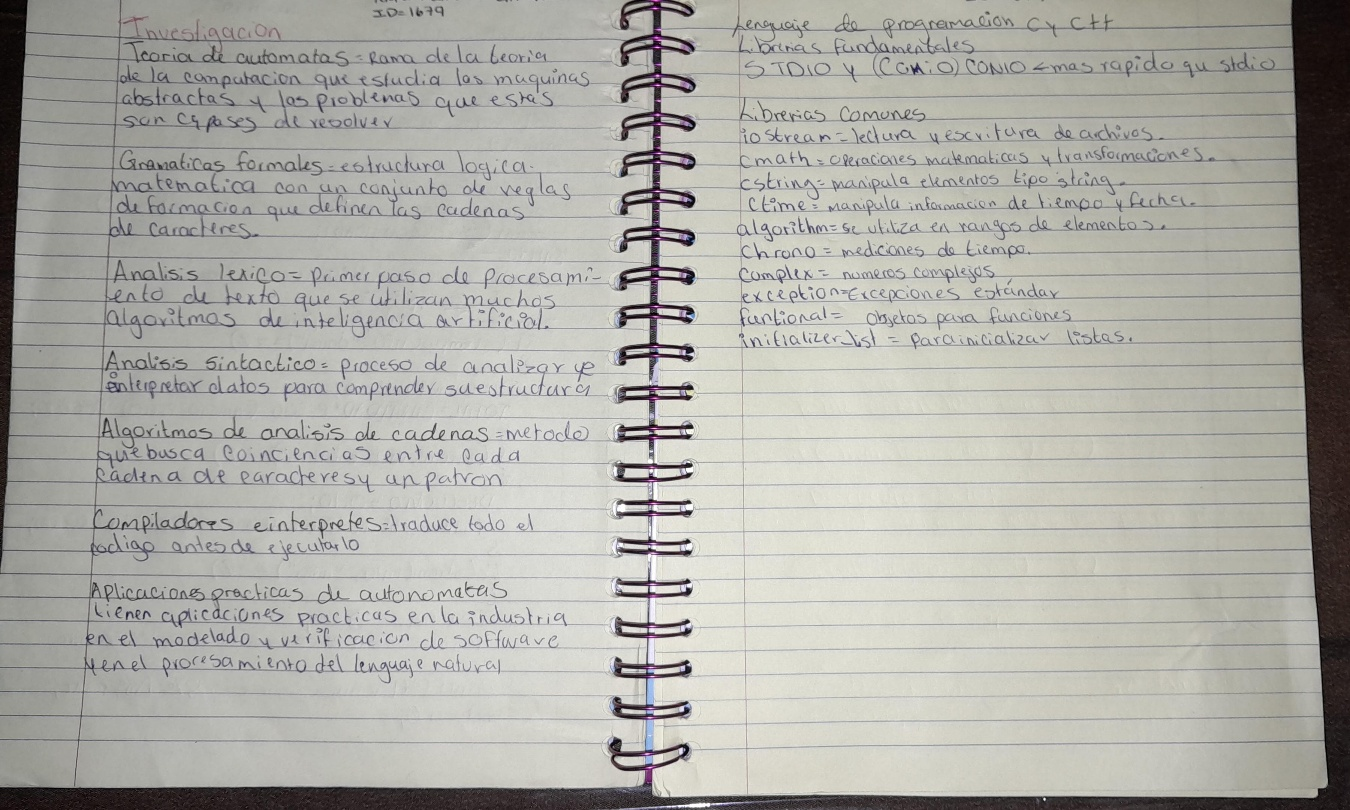 ID=1679
Investigacion
Teoria de automatas = Rama de la teoria
de la computacion que estudia las maquinas
abstractas y los problemas que estas
son capases de resolver
Gramaticas formales = estructura logica-
matematica con un conjunto de reglas
de formacion que definen las cadenas
de caracteres.
Analisis lexico = primer paso de procesami-
ento de texto que se utilizan muchos
algoritmos de inteligencia artificial.
Analisis sintactico = proceso de analizar e
interpretar datos para comprender su estructura
Algoritmos de analisis de cadenas = metodo
que busca coinciencias entre cada
cadena de caracteres y un patron
Compiladores e interpretes = traduce todo el
codigo antes de ejecutarlo
Aplicaciones practicas de autonomatas
tienen aplicaciones practicas en la industria
en el modelado y verificacion de software
y en el procesamiento del lenguaje natural
Lenguaje de programacion C y C++
Librerias fundamentales
STDIO y (CONIO) CONIO < mas rapido qu stdio
Librerias Comunes
iostream = lectura y escritura de archivos.
cmath = operaciones matematicas y transformaciones.
cstring = manipula elementos tipo string.
Ctime = manipula informacion de tiempo y fecha.
algorithm = se utiliza en rangos de elementos.
chrono = mediciones de tiempo.
complex = numeros complejos
exception = Excepciones estándar
funtional = objetos para funciones
initializer_list = para inicializar listas.